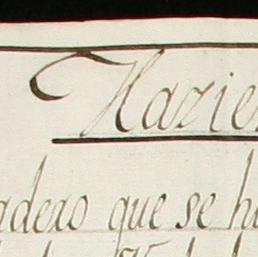 Hazie
adero que se h